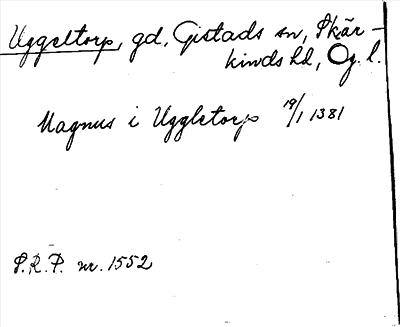 Uggeltorp, gd, Gistads sn, Skär-
kinds hd, Ög. l.
Magnus i Uggletorp 19/1 1381
S.R.P. nr. 1552